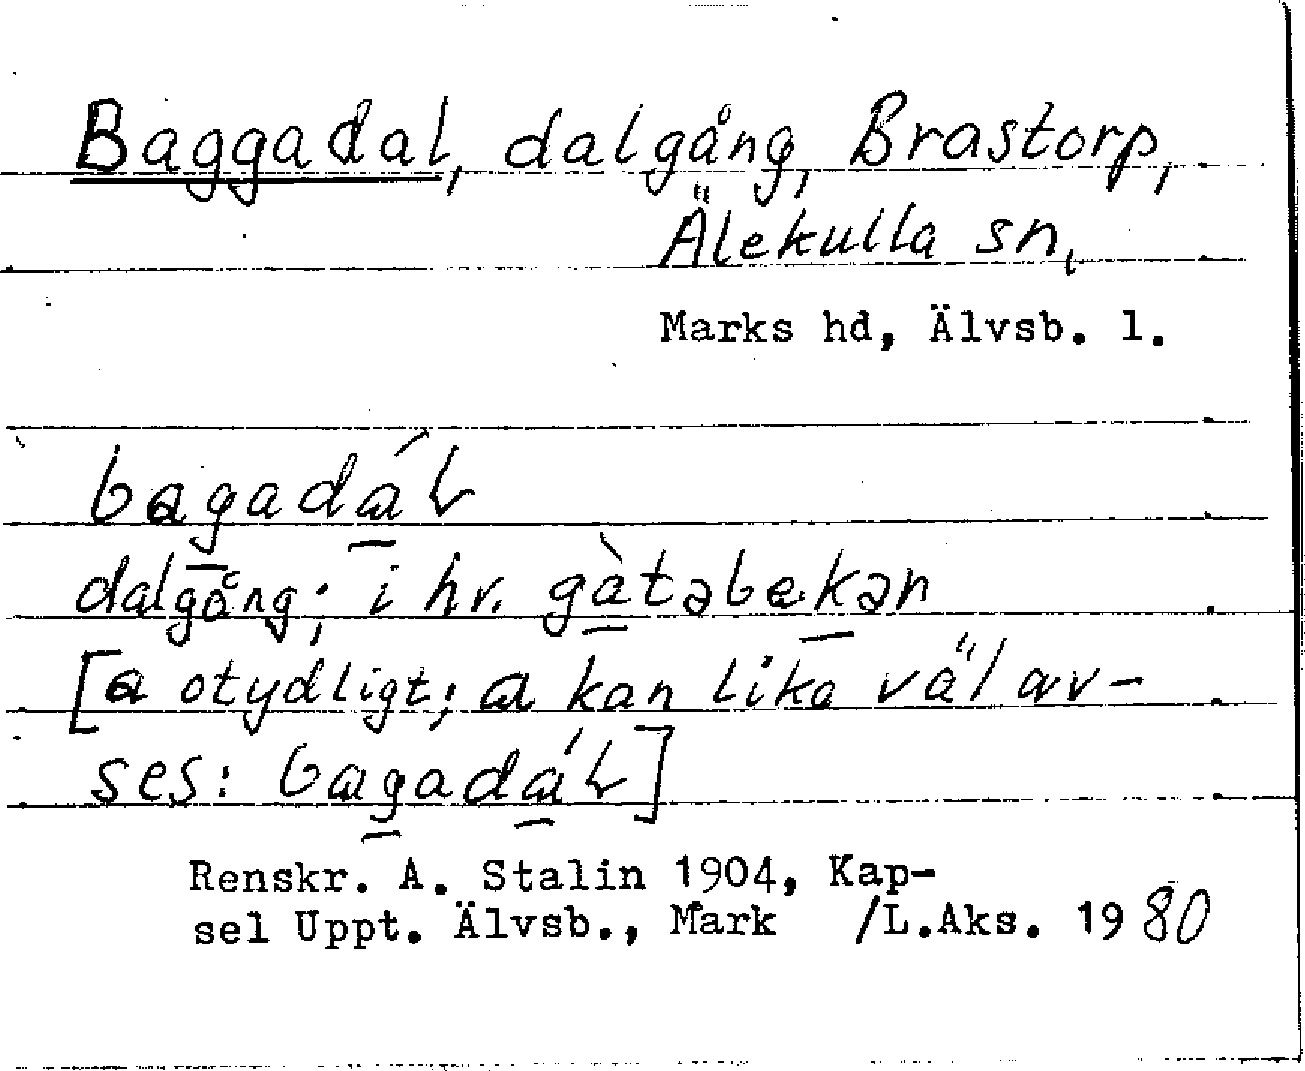 Baggadal, dalgång, Brastorp,
Älekulla sn,
Marks hd, Älvsb. l.
bagadáɫ
dalgång; i hr. gàtəbekən
[a otydligt; ɑ kan lika väl av-
ses: bɑgadáɫ]
Renskr. A. Stalin 1904, Kap-
sel Uppt. Älvsb., Mark /L.Aks. 1980